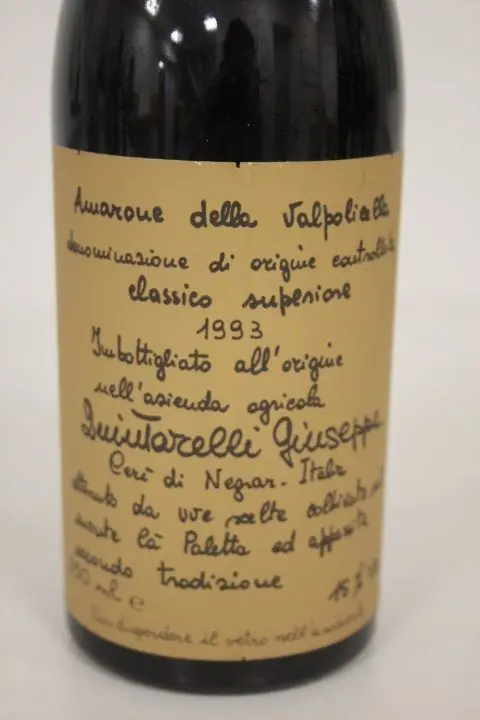 Amarone della Valpolicella
denominazione di origine controllata
classico superiore
1993
Imbottigliato all'origine
nell'azienda agricola
Quintarelli Giuseppe
Cerè di Negrar - Italia
ottenuto da uve scelte coltivate sul
monte Cà Paletta ed appassite
secondo tradizione
750 ml e 15 % vol
Non disperdere il vetro nell'ambiente